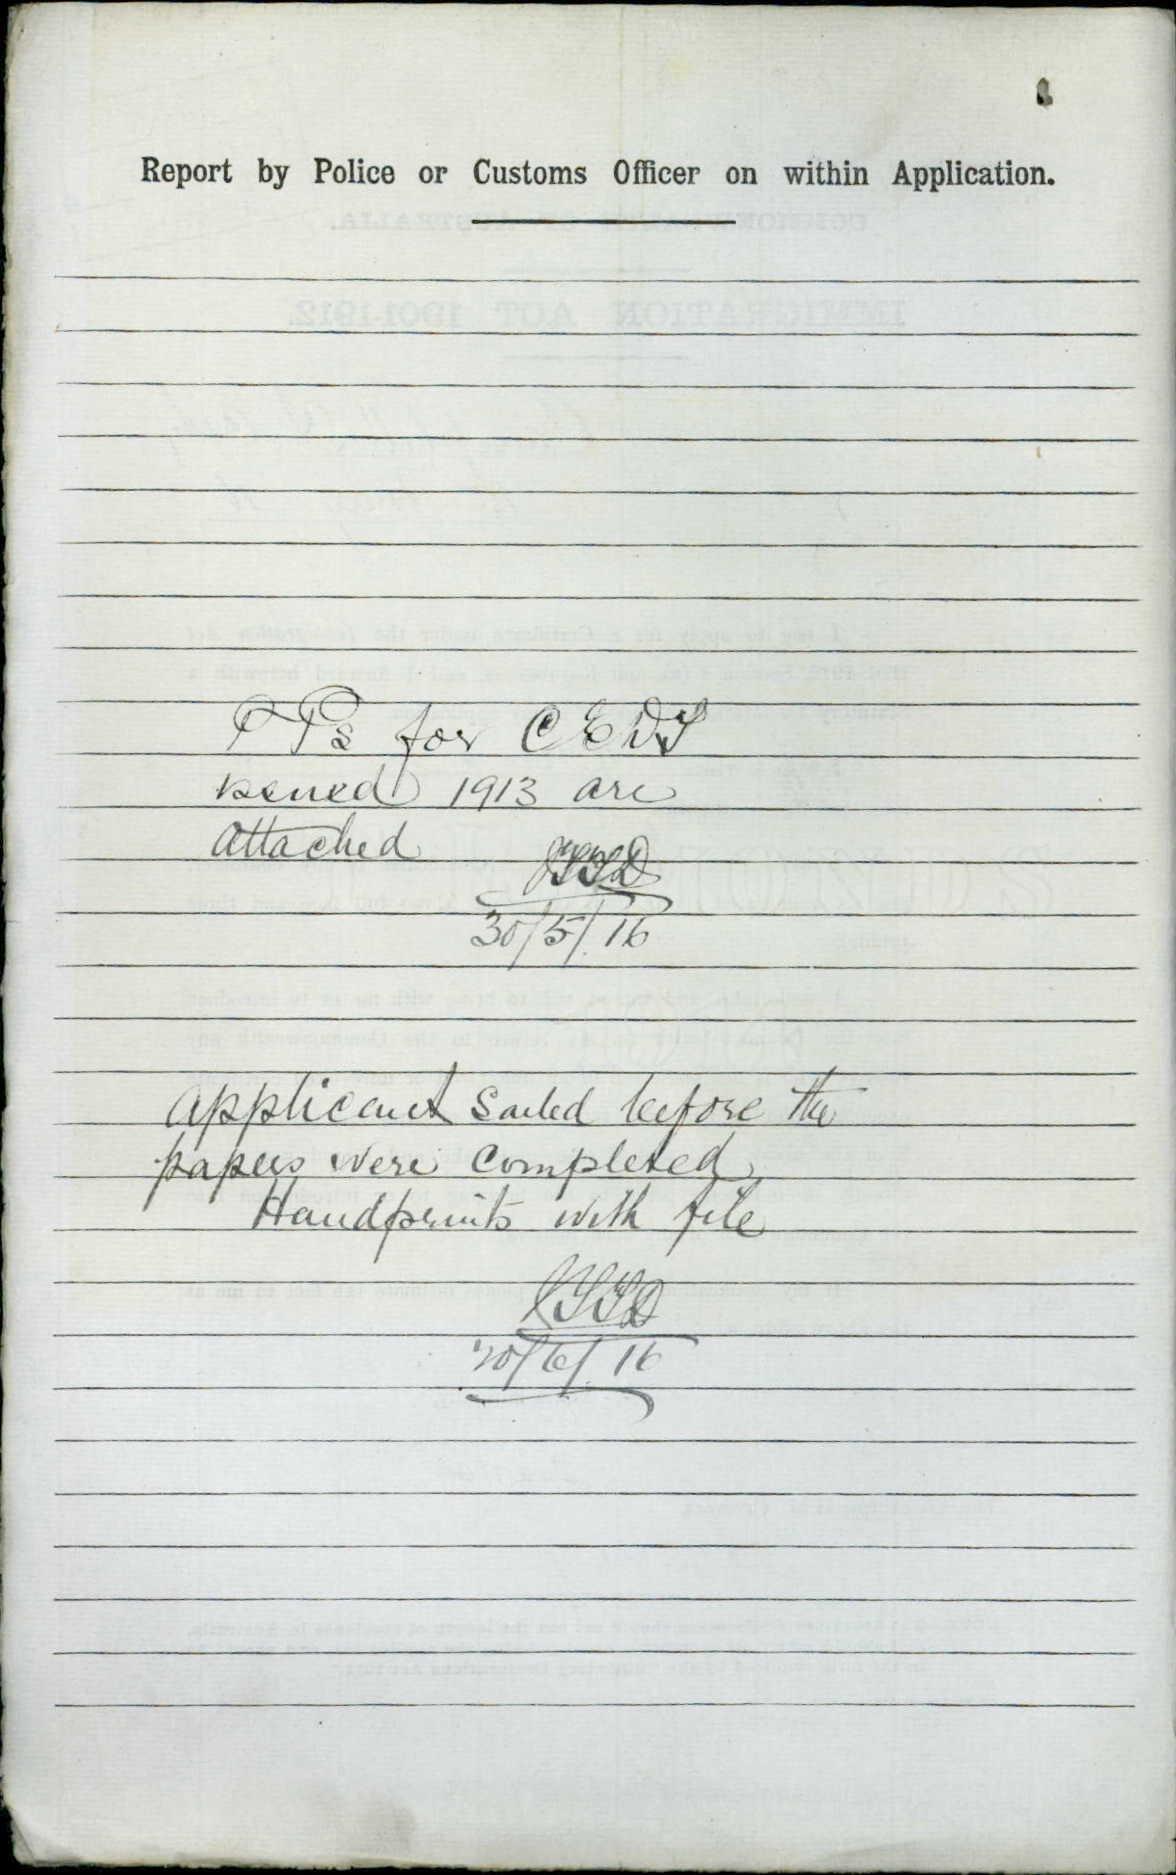 Report by Police or Customs Officer on within Application.
PPs for CEDT
issued 1913 are
attached
30/5/16
applicant sailed before the
papers were completed
Handprints with file
20/6/16